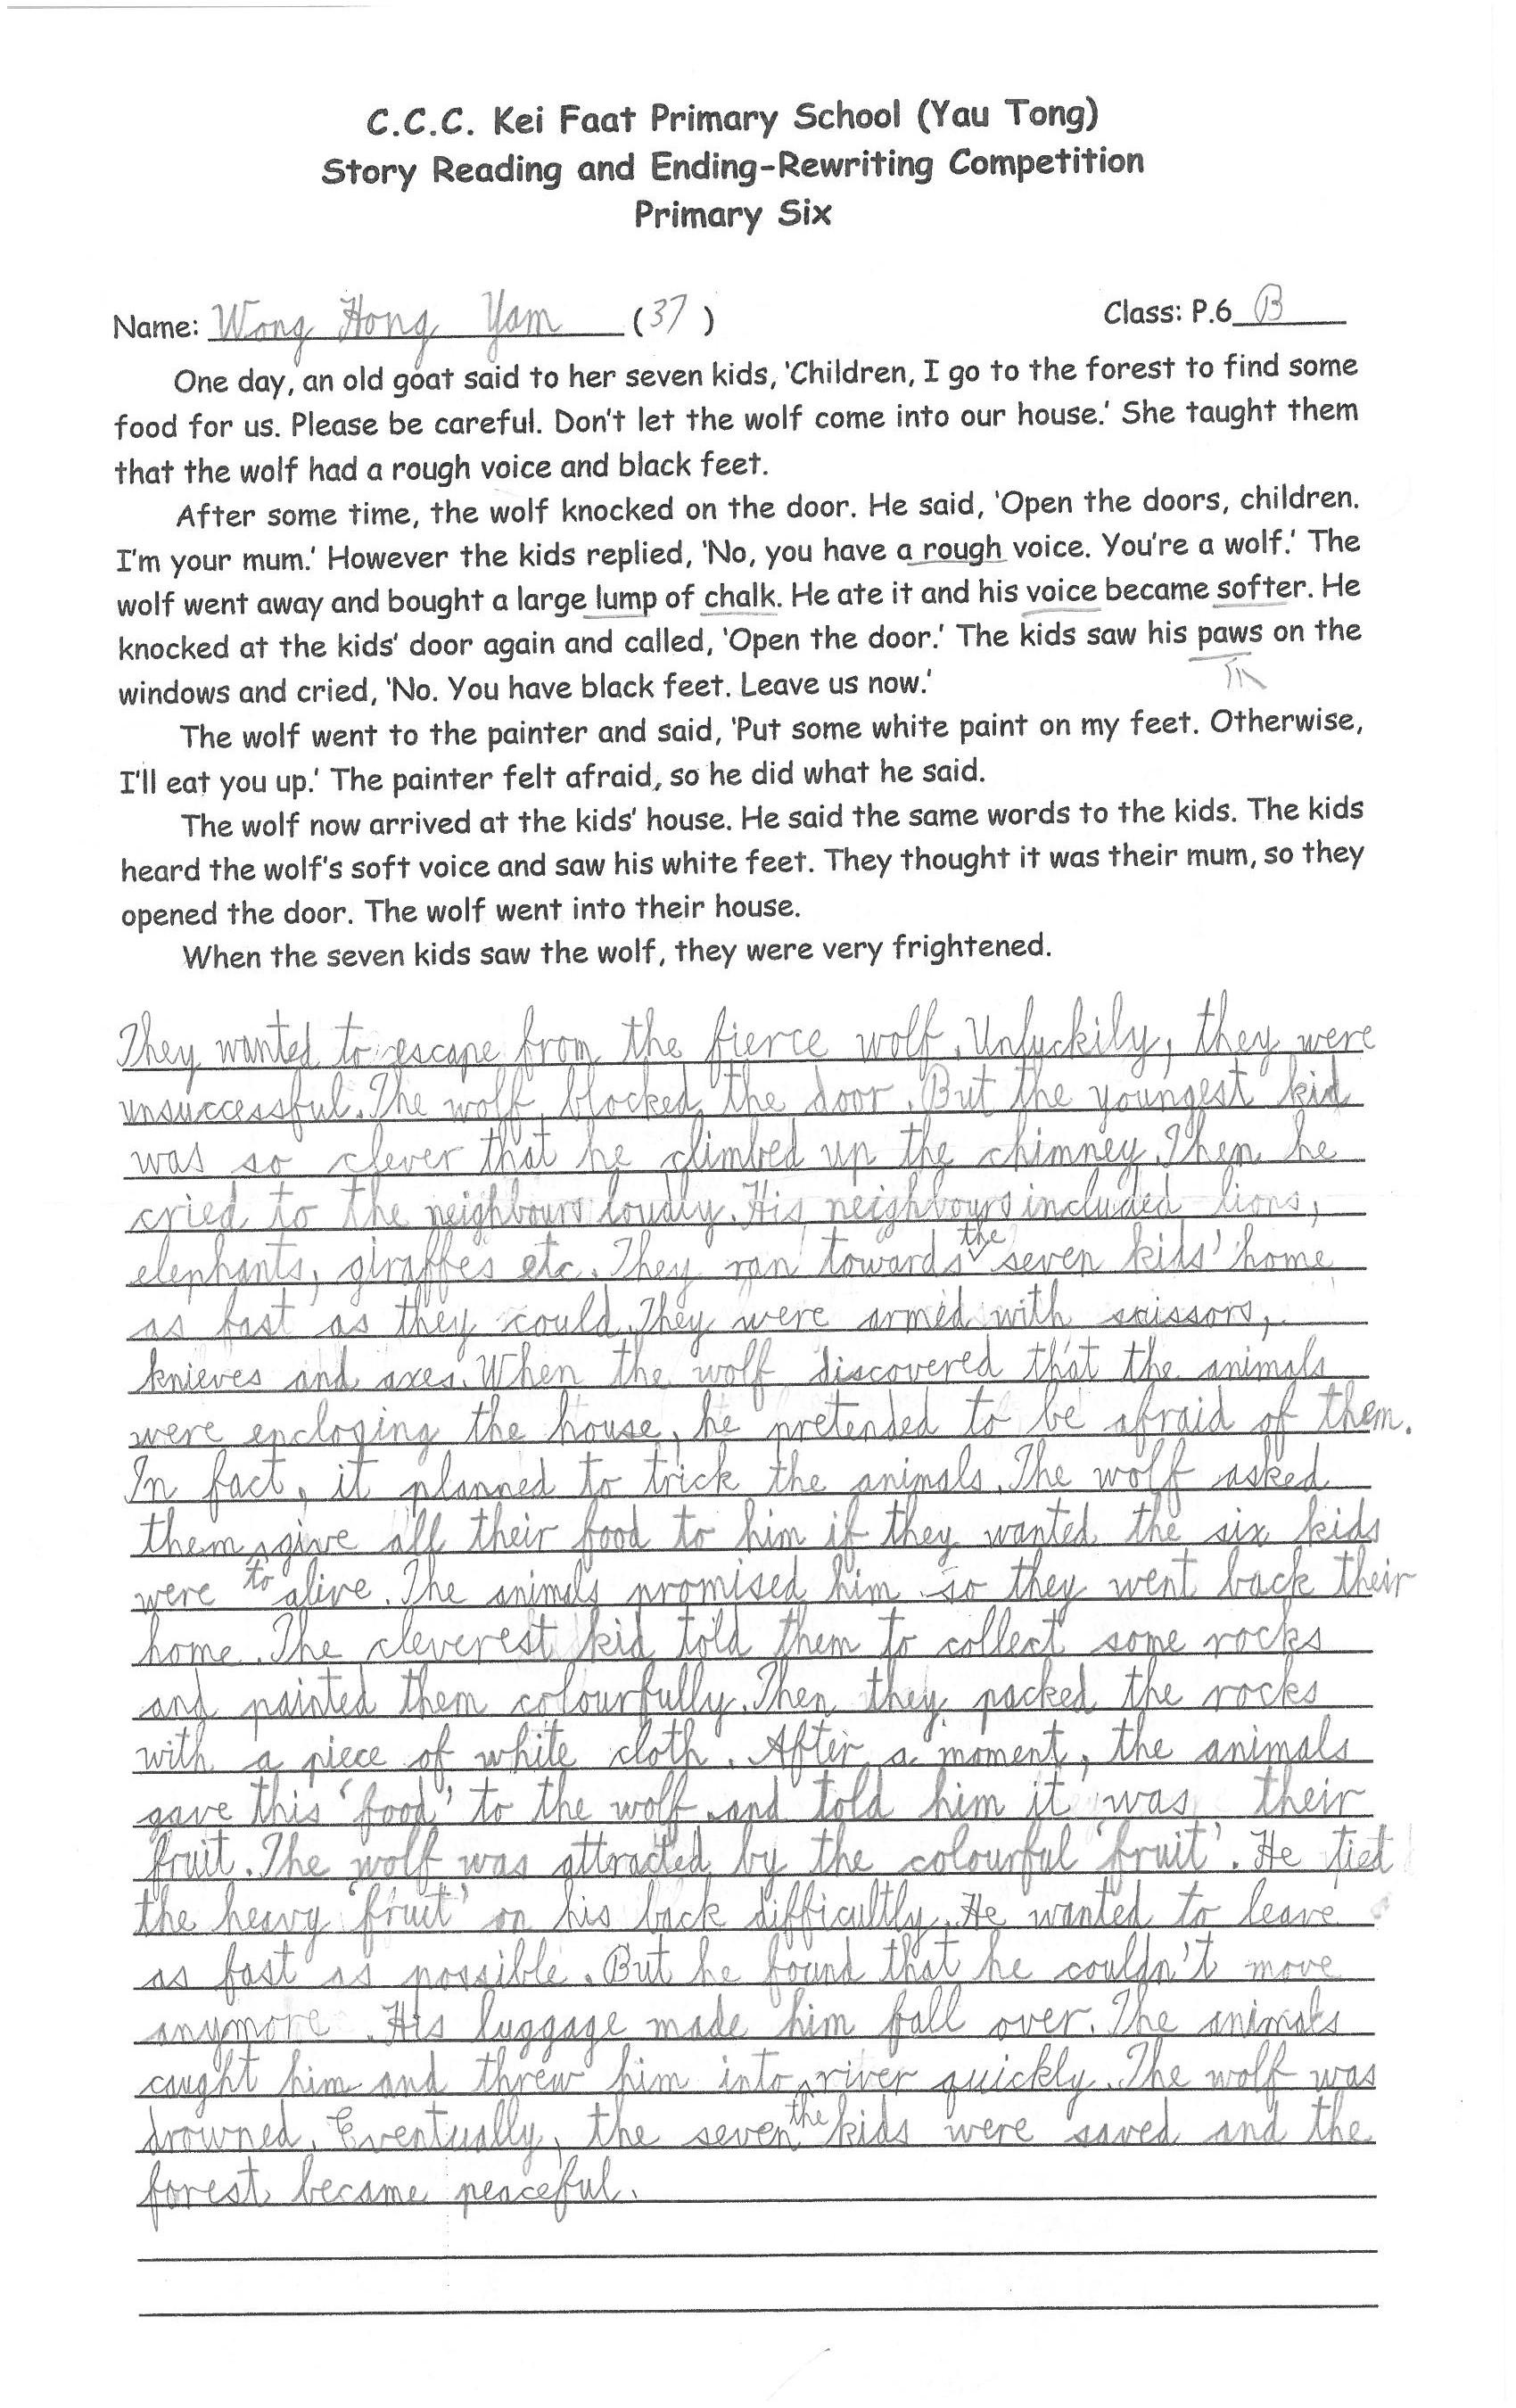 C.C.C. Kei Faat Primary School (Yau Tong)
Story Reading and Ending-Rewriting Competition
Primary Six
Name: Wong Hong Yam (37) Class: P.6 B
One day, an old goat said to her seven kids, 'Children, I go to the forest to find some
food for us. Please be careful. Don't let the wolf come into our house.' She taught them
that the wolf had a rough voice and black feet.
After some time, the wolf knocked on the door. He said, 'Open the doors, children.
I'm your mum.' However the kids replied, 'No, you have a rough voice. You're a wolf.' The
wolf went away and bought a large lump of chalk. He ate it and his voice became softer. He
knocked at the kids' door again and called, 'Open the door.' The kids saw his paws on the
windows and cried, 'No. You have black feet. Leave us now.'
The wolf went to the painter and said, 'Put some white paint on my feet. Otherwise,
I'll eat you up.' The painter felt afraid, so he did what he said.
The wolf now arrived at the kids' house. He said the same words to the kids. The kids
heard the wolf's soft voice and saw his white feet. They thought it was their mum, so they
opened the door. The wolf went into their house.
When the seven kids saw the wolf, they were very frightened.
They wanted to escape from the fierce wolf. Unluckily, they were
unsuccessful. The wolf blocked the door. But the youngest kid
was so clever that he climbed up the chimney. Then he
cried to the neighbours loudly. His neighbours included lions,
elephants, giraffes etc. They ran towards the seven kids' home
as fast as they could. They were armed with scissors,
knieves and axes. When the wolf discovered that the animals
were enclosing the house, he pretended to be afraid of them.
In fact, it planned to trick the animals. The wolf asked
them to give all their food to him if they wanted the six kids
were alive. The animals promised him so they went back their
home. The cleverest kid told them to collect some rocks
and painted them colourfully. Then they packed the rocks
with a piece of white cloth. After a moment, the animals
gave this 'food' to the wolf and told him it was their
fruit. The wolf was attracted by the colourful 'fruit'. He tied
the heavy 'fruit' on his back difficultly. He wanted to leave
as fast as possible. But he found that he couldn't move
anymore. His luggage made him fall over. The animals
caught him and threw him into the river quickly. The wolf was
drowned. Eventually, the seven kids were saved and the
forest became peaceful.